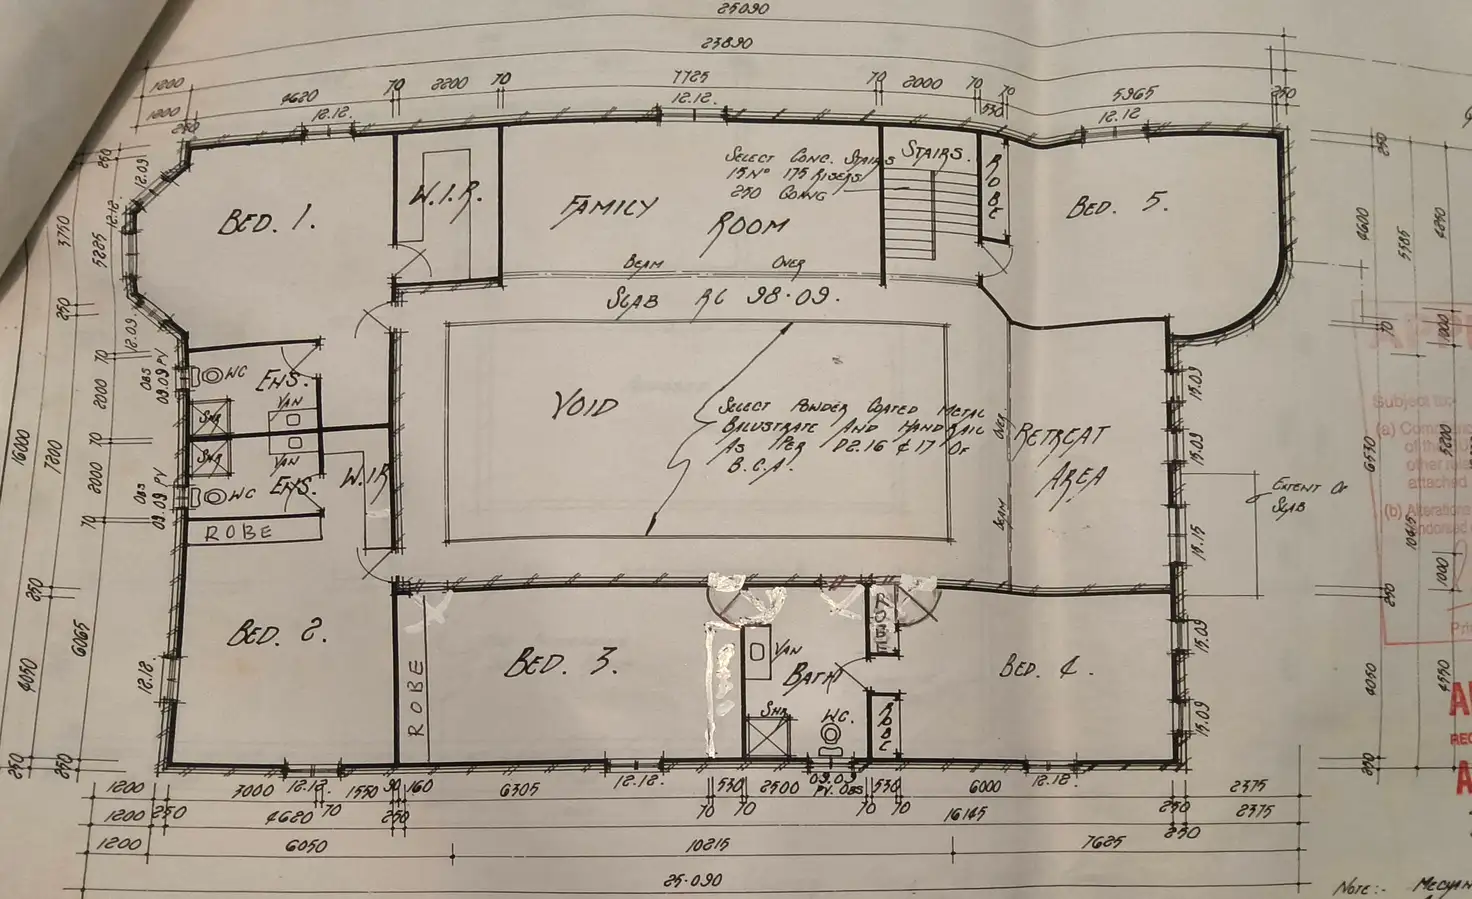 25090
23890
1200 4620 70 2200 70 7725 70 2000 70 530 70 5965 250
1200 250 12.12. 12.12. 12.12
250 12.09 12.12. 3750 5225 250 12.09
BED. 1.
W.I.R.
FAMILY ROOM
SELECT CONC. STAIRS
15Nº 175 RISERS
250 GOING
STAIRS.
ROBE
BED. 5.
BEAM OVER
SLAB RL 98.09.
VOID
SELECT POWDER COATED METAL
BALUSTRATE AND HANDRAIL
AS PER D2.16 & 17 OF
B.C.A.
BEAM OVER
RETREAT
AREA
EXTENT OF
SLAB
WC
ENS.
SHR
VAN
SHR
VAN
WC
ENS.
W.I.R
ROBE
OBS 09.09 PV
OBS 09.09 PV
16000 7200 70 2000 70 2000 70
250 6065 4050 250 250
12.12
BED. 2.
ROBE
BED. 3.
VAN
BATH
SHR
WC.
ROBE
ROBE
BED. 4.
15.09
15.09
15.15
15.09
15.09
250 4600 5585 4850
70 1000 6530 5200 10415
250 1000 4050 4550 250
Subject to:-
(a)
of the
other
attached
(b) Alterations
endorsed
1200 3000 12.12. 70 1550 90 160 6305 12.12. 530 2500 09.09 530 6000 12.12 2375
PV. OBS
1200 250 4620 250 70 70 70 70 16145 250 2375
1200 6050 10215 7625 250
25.090
NOTE:-